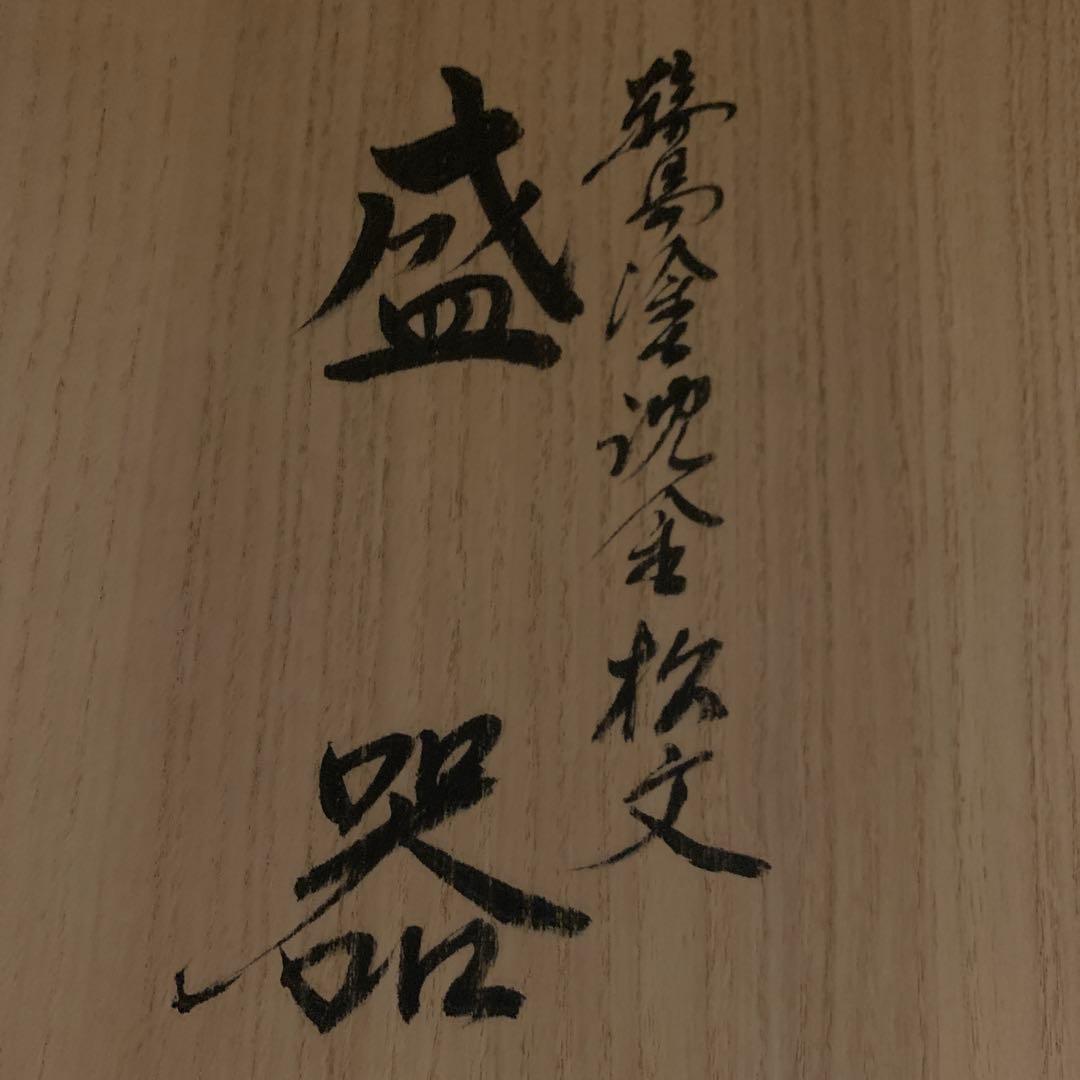 輪島塗沈金松文
盛器